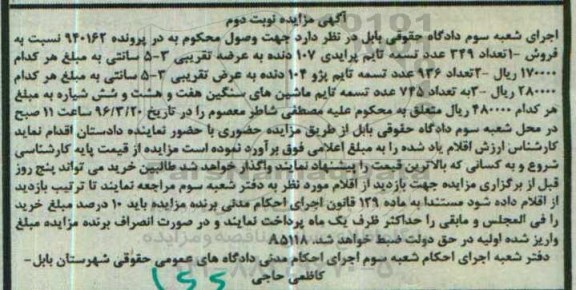 آگهی مزایده نوبت دوم
اجرای شعبه سوم دادگاه حقوقی بابل در نظر دارد جهت وصول محکوم به در پرونده ۹۴۰۱۶۲ نسبت به
فروش ۱-تعداد ۳۴۹ عدد تسمه تایم پرایدی ۱۰۷ دنده به عرضه تقریبی ۳-۵ سانتی به مبلغ هر کدام
۱۷۰۰۰۰ ریال ۲-تعداد ۹۳۶ عدد تسمه تایم پژو ۱۰۴ دنده به عرض تقریبی ۳-۵ سانتی به مبلغ هر کدام
۲۸۰۰۰۰ ریال ۳-به تعداد ۷۴۵ عدد تسمه تایم ماشین های سنگین هفت و هشت و شش شیاره به مبلغ
هر کدام ۴۸۰۰۰۰ ریال متعلق به محکوم علیه مصطفی شاطر معصوم را در تاریخ ۹۶/۳/۲۰ ساعت ۱۱ صبح
در محل شعبه سوم دادگاه حقوقی بابل از طریق مزایده حضوری با حضور نماینده دادستان اقدام نماید
کارشناس ارزش اقلام یاد شده را به مبلغ اعلامی فوق برآورد نموده است مزایده از قیمت پایه کارشناسی
شروع و به کسانی که بالاترین قیمت را پیشنهاد نمایند واگذار خواهد شد طالبین خرید می تواند پنج روز
قبل از برگزاری مزایده جهت بازدید از اقلام مورد نظر به دفتر شعبه سوم مراجعه نمایند تا ترتیب بازدید
از اقلام داده شود مستندا به ماده ۱۲۹ قانون اجرای احکام مدنی برنده مزایده باید ۱۰ درصد مبلغ خرید
را فی المجلس و مابقی را حداکثر ظرف یک ماه پرداخت نمایند و در صورت انصراف برنده مزایده مبلغ
واریز شده اولیه در حق دولت ضبط خواهد شد. ۸۵۱۱۸
دفتر شعبه اجرای احکام شعبه سوم اجرای احکام مدنی دادگاه های عمومی حقوقی شهرستان بابل-
کاظمی حاجی